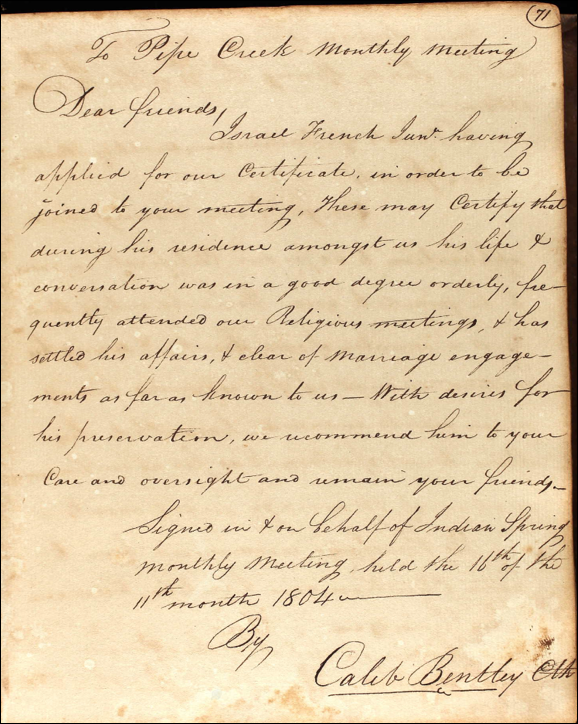 71
To Pipe Creek Monthly Meeting
Dear friends,
Israel French Junr. having
applied for our Certificate, in order to be
joined to your meeting, These may Certify that
during his residence amongst us his life &
conversation was in a good degree orderly, fre-
quently attended our Religious meetings, & has
settled his affairs, & clear of marriage engage-
ments as far as known to us – With desires for
his preservation, we recommend him to your
Care and oversight and remain your friends –
Signed in & on behalf of Indian Spring
monthly Meeting, held the 16th of the
11th month 1804
By
Caleb Bentley Clk